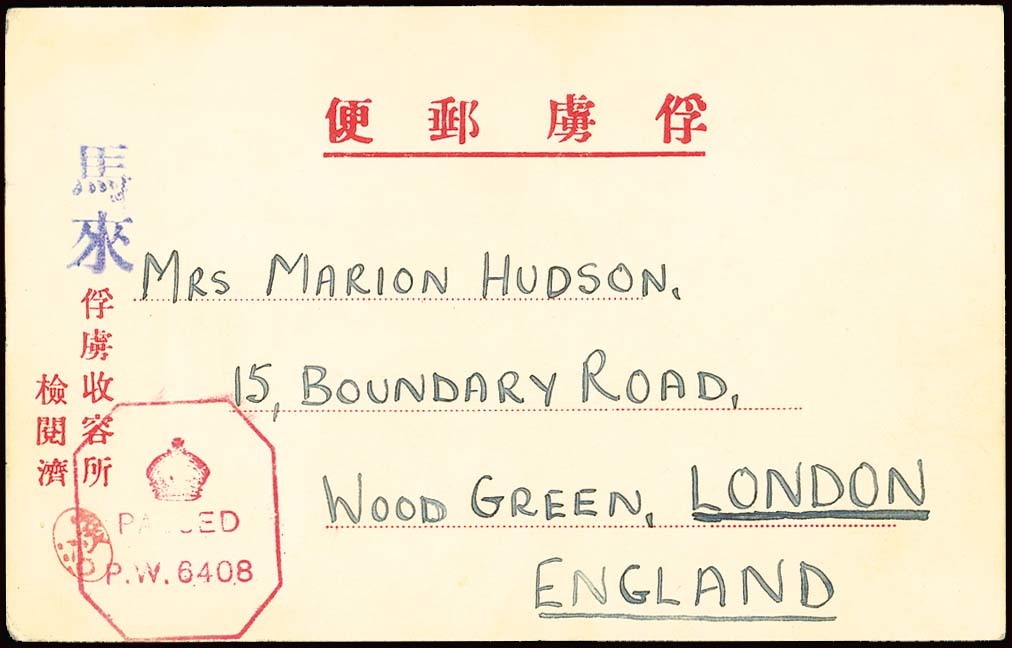 俘虜郵便
馬來
俘虜收容所
檢閱濟
MRS MARION HUDSON.
15, BOUNDARY ROAD,
WOOD GREEN, LONDON
ENGLAND
PASSED
P.W. 6408